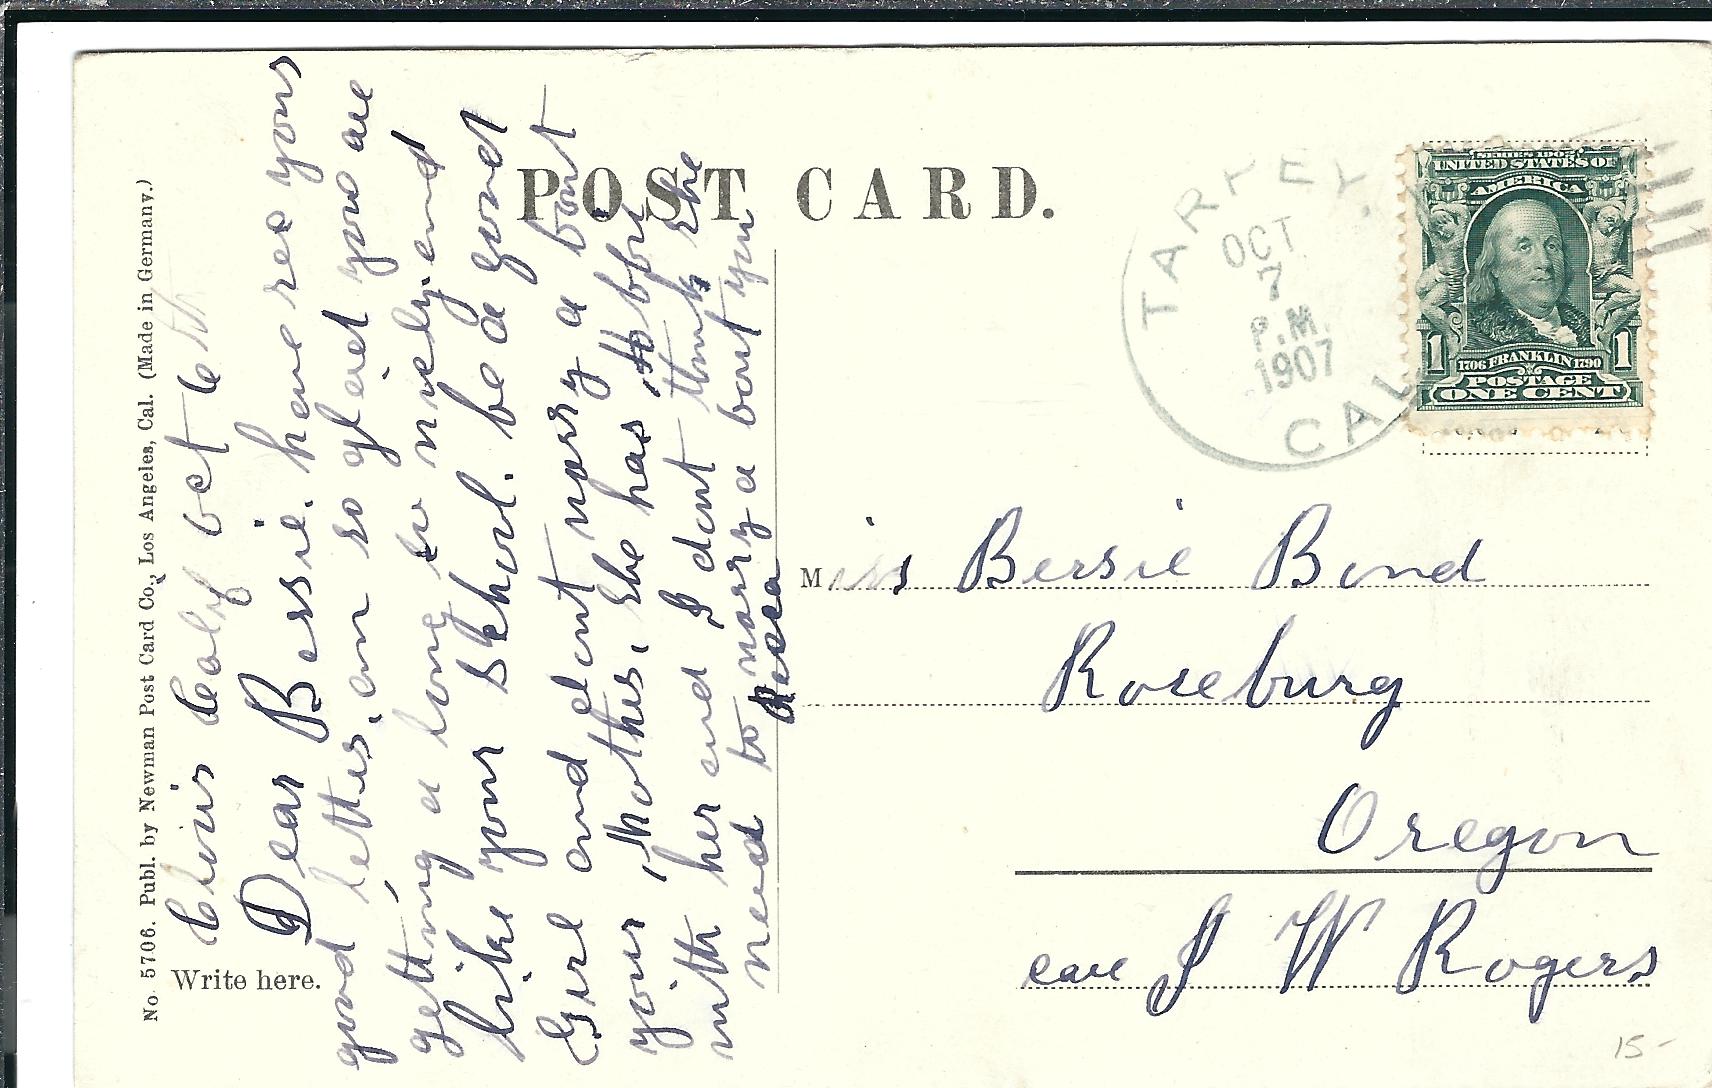 POST CARD.
No. 5706. Publ. by Newman Post Card Co., Los Angeles, Cal. (Made in Germany.)
Write here.
oct 6th
Dear Bessie. have rec your
good letter. am so glad you are
getting a long so nicely. and
like your school. be a good
Girl and dont worry a bout
your Mother. she has Hobby
with her and I dont think she
need to worry a bout you
TARPEY.
OCT
7
P.M.
1907
CAL.
SERIES 1902
UNITED STATES OF
AMERICA
1706 FRANKLIN 1790
1 POSTAGE 1
ONE CENT
Miss Bessie Bond
Roseburg
Oregon
care J W Rogers
15-